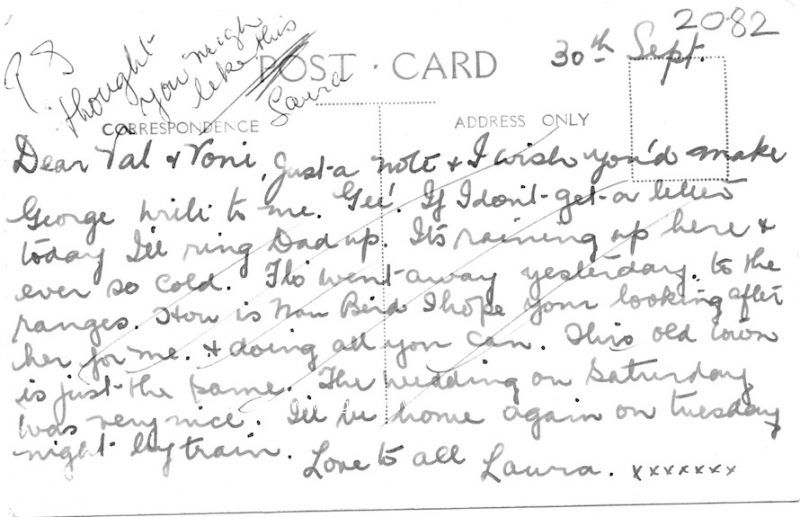 2082
30th Sept.
P S
thought
you might
like this
Laura
POST · CARD
CORRESPONDENCE
ADDRESS ONLY
Dear Val & Noni, Just a note & I wish you'd make
George write to me. Gee! If I don't get a letter
today I'll ring Dad up. It's raining up here &
ever so cold. Flo went away yesterday to the
ranges. How is Nan Bird I hope your looking after
her for me. & doing all you can. This old town
is just the same. The wedding on Saturday
was very nice. I'll be home again on tuesday
night by train. Love to all Laura. xxxxxxx